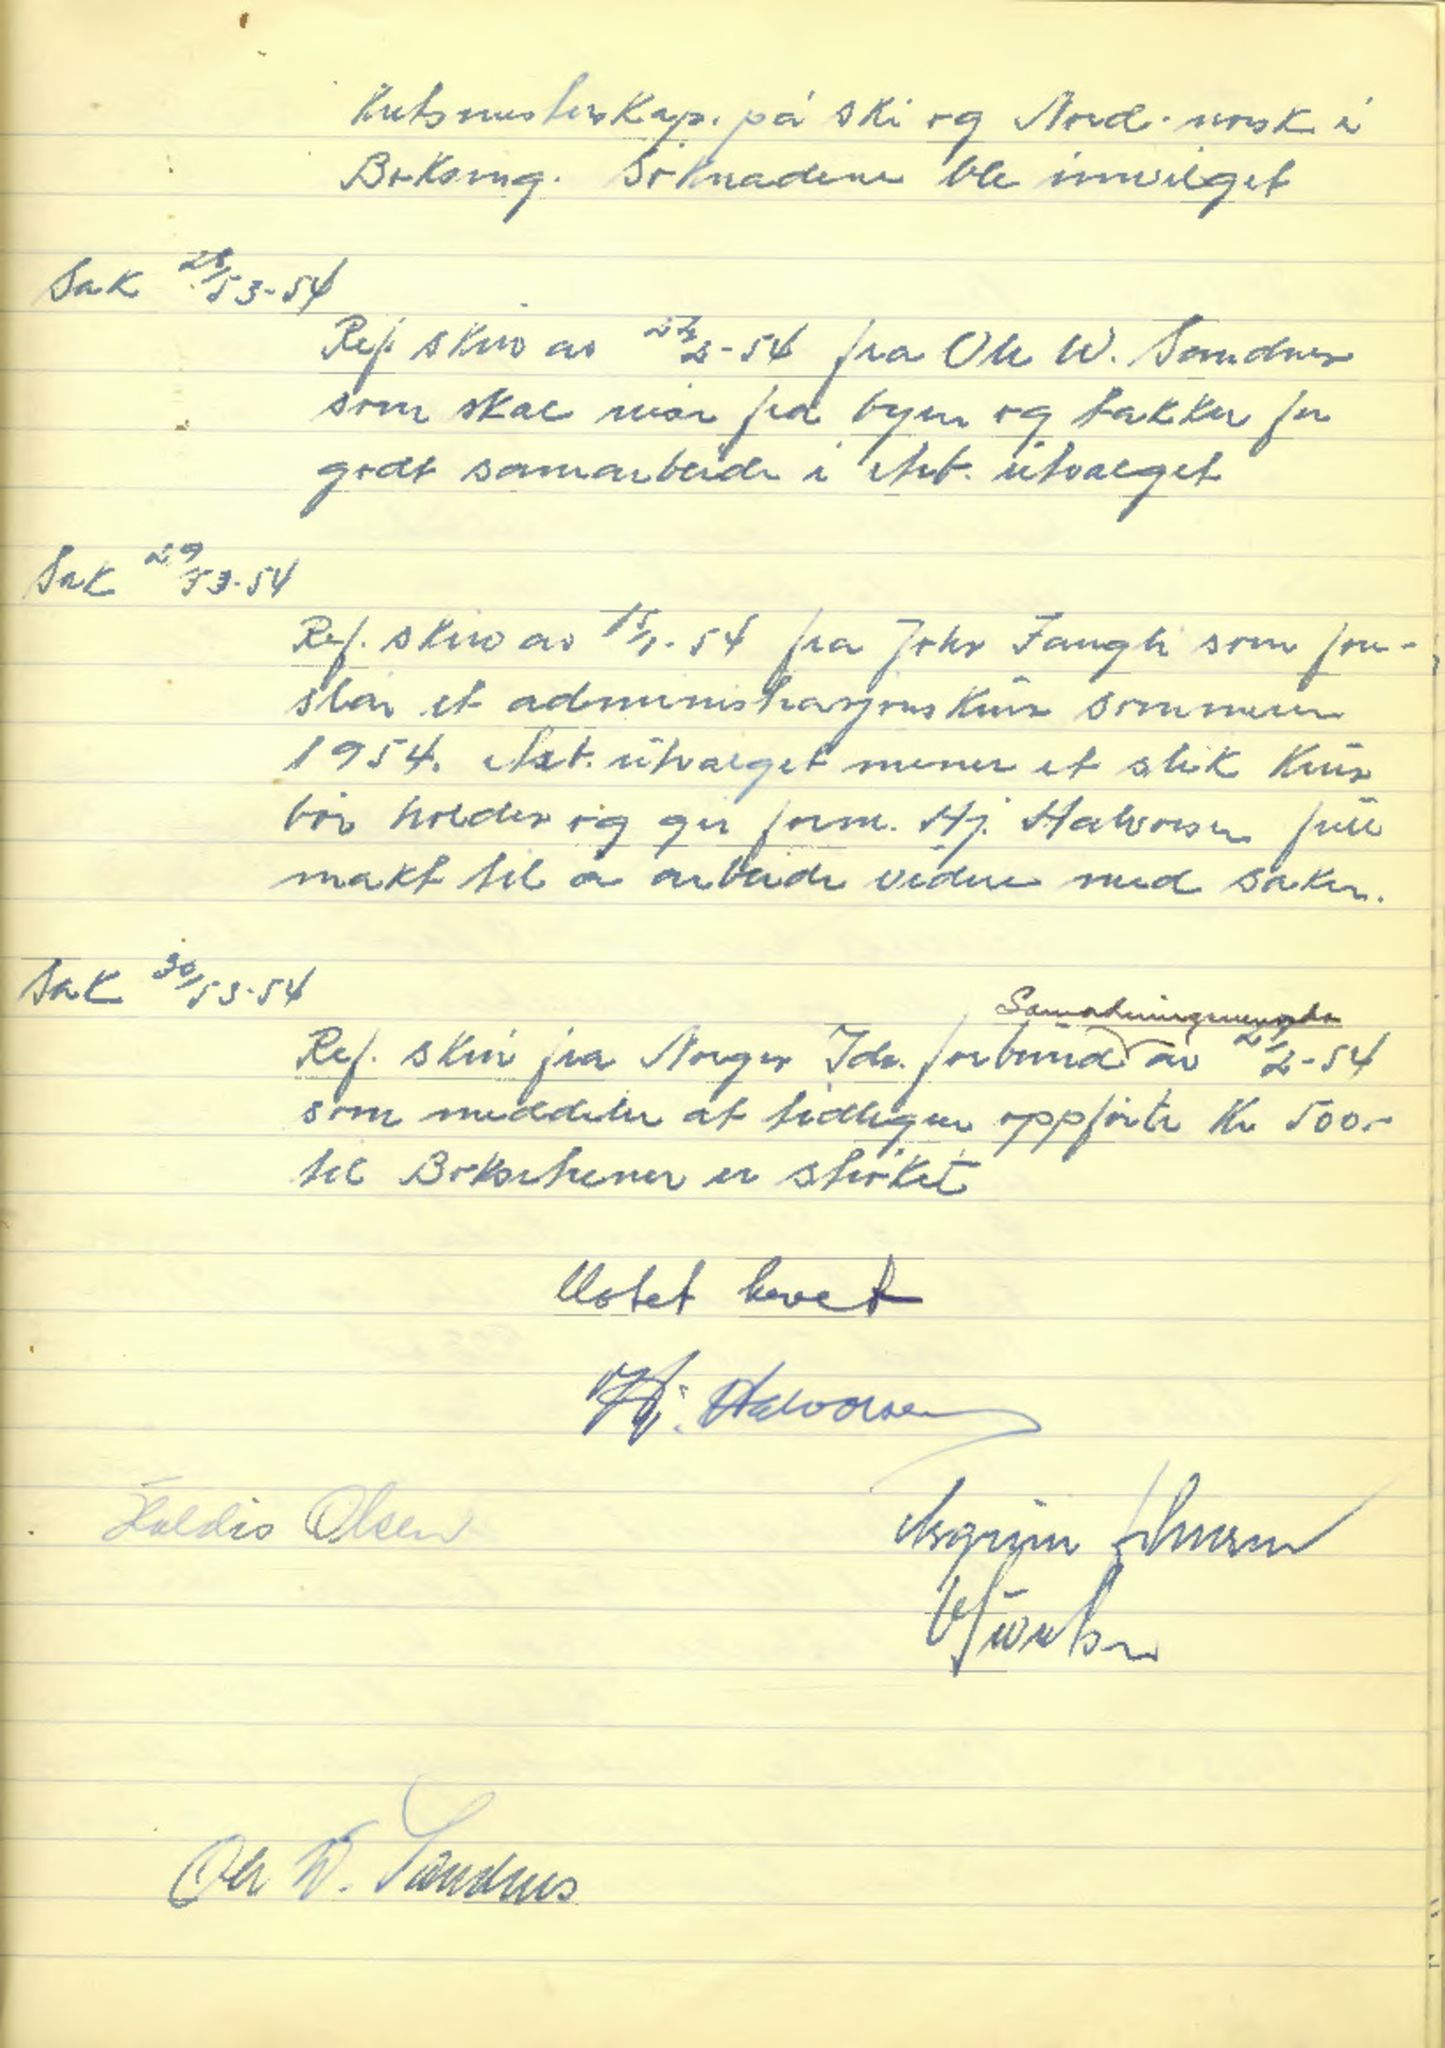 Kretsmesterskap. på ski og Nord-norsk i
Boksing. Søknadene ble innvilget
Sak 28/53-54
Ref. skriv av 22/2-54 fra Ole W. Sandnes
som skal reise fra byen og takker for
godt samarbeide i Arb. utvalget
Sak 29/53-54
Ref. skriv av 15/1-54 fra John Fangli som fore-
slår et administrasjonskurs sommeren
1954. Arb. utvalget mener et slik kurs
bør holdes og gir form. Hj. Halvorsen full
makt til å arbeide videre med saken.
Sak 30/53-54
Samordningsnemnda
Ref. skriv fra Norges Idr. forbund av 21/2-54
som meddeler at tidligere oppførte Kr 500.-
til Boksetrener er strøket
Møtet hevet
Hj. Halvorsen
Haldis Olsen
Asgrim
Ole W. Sandnes